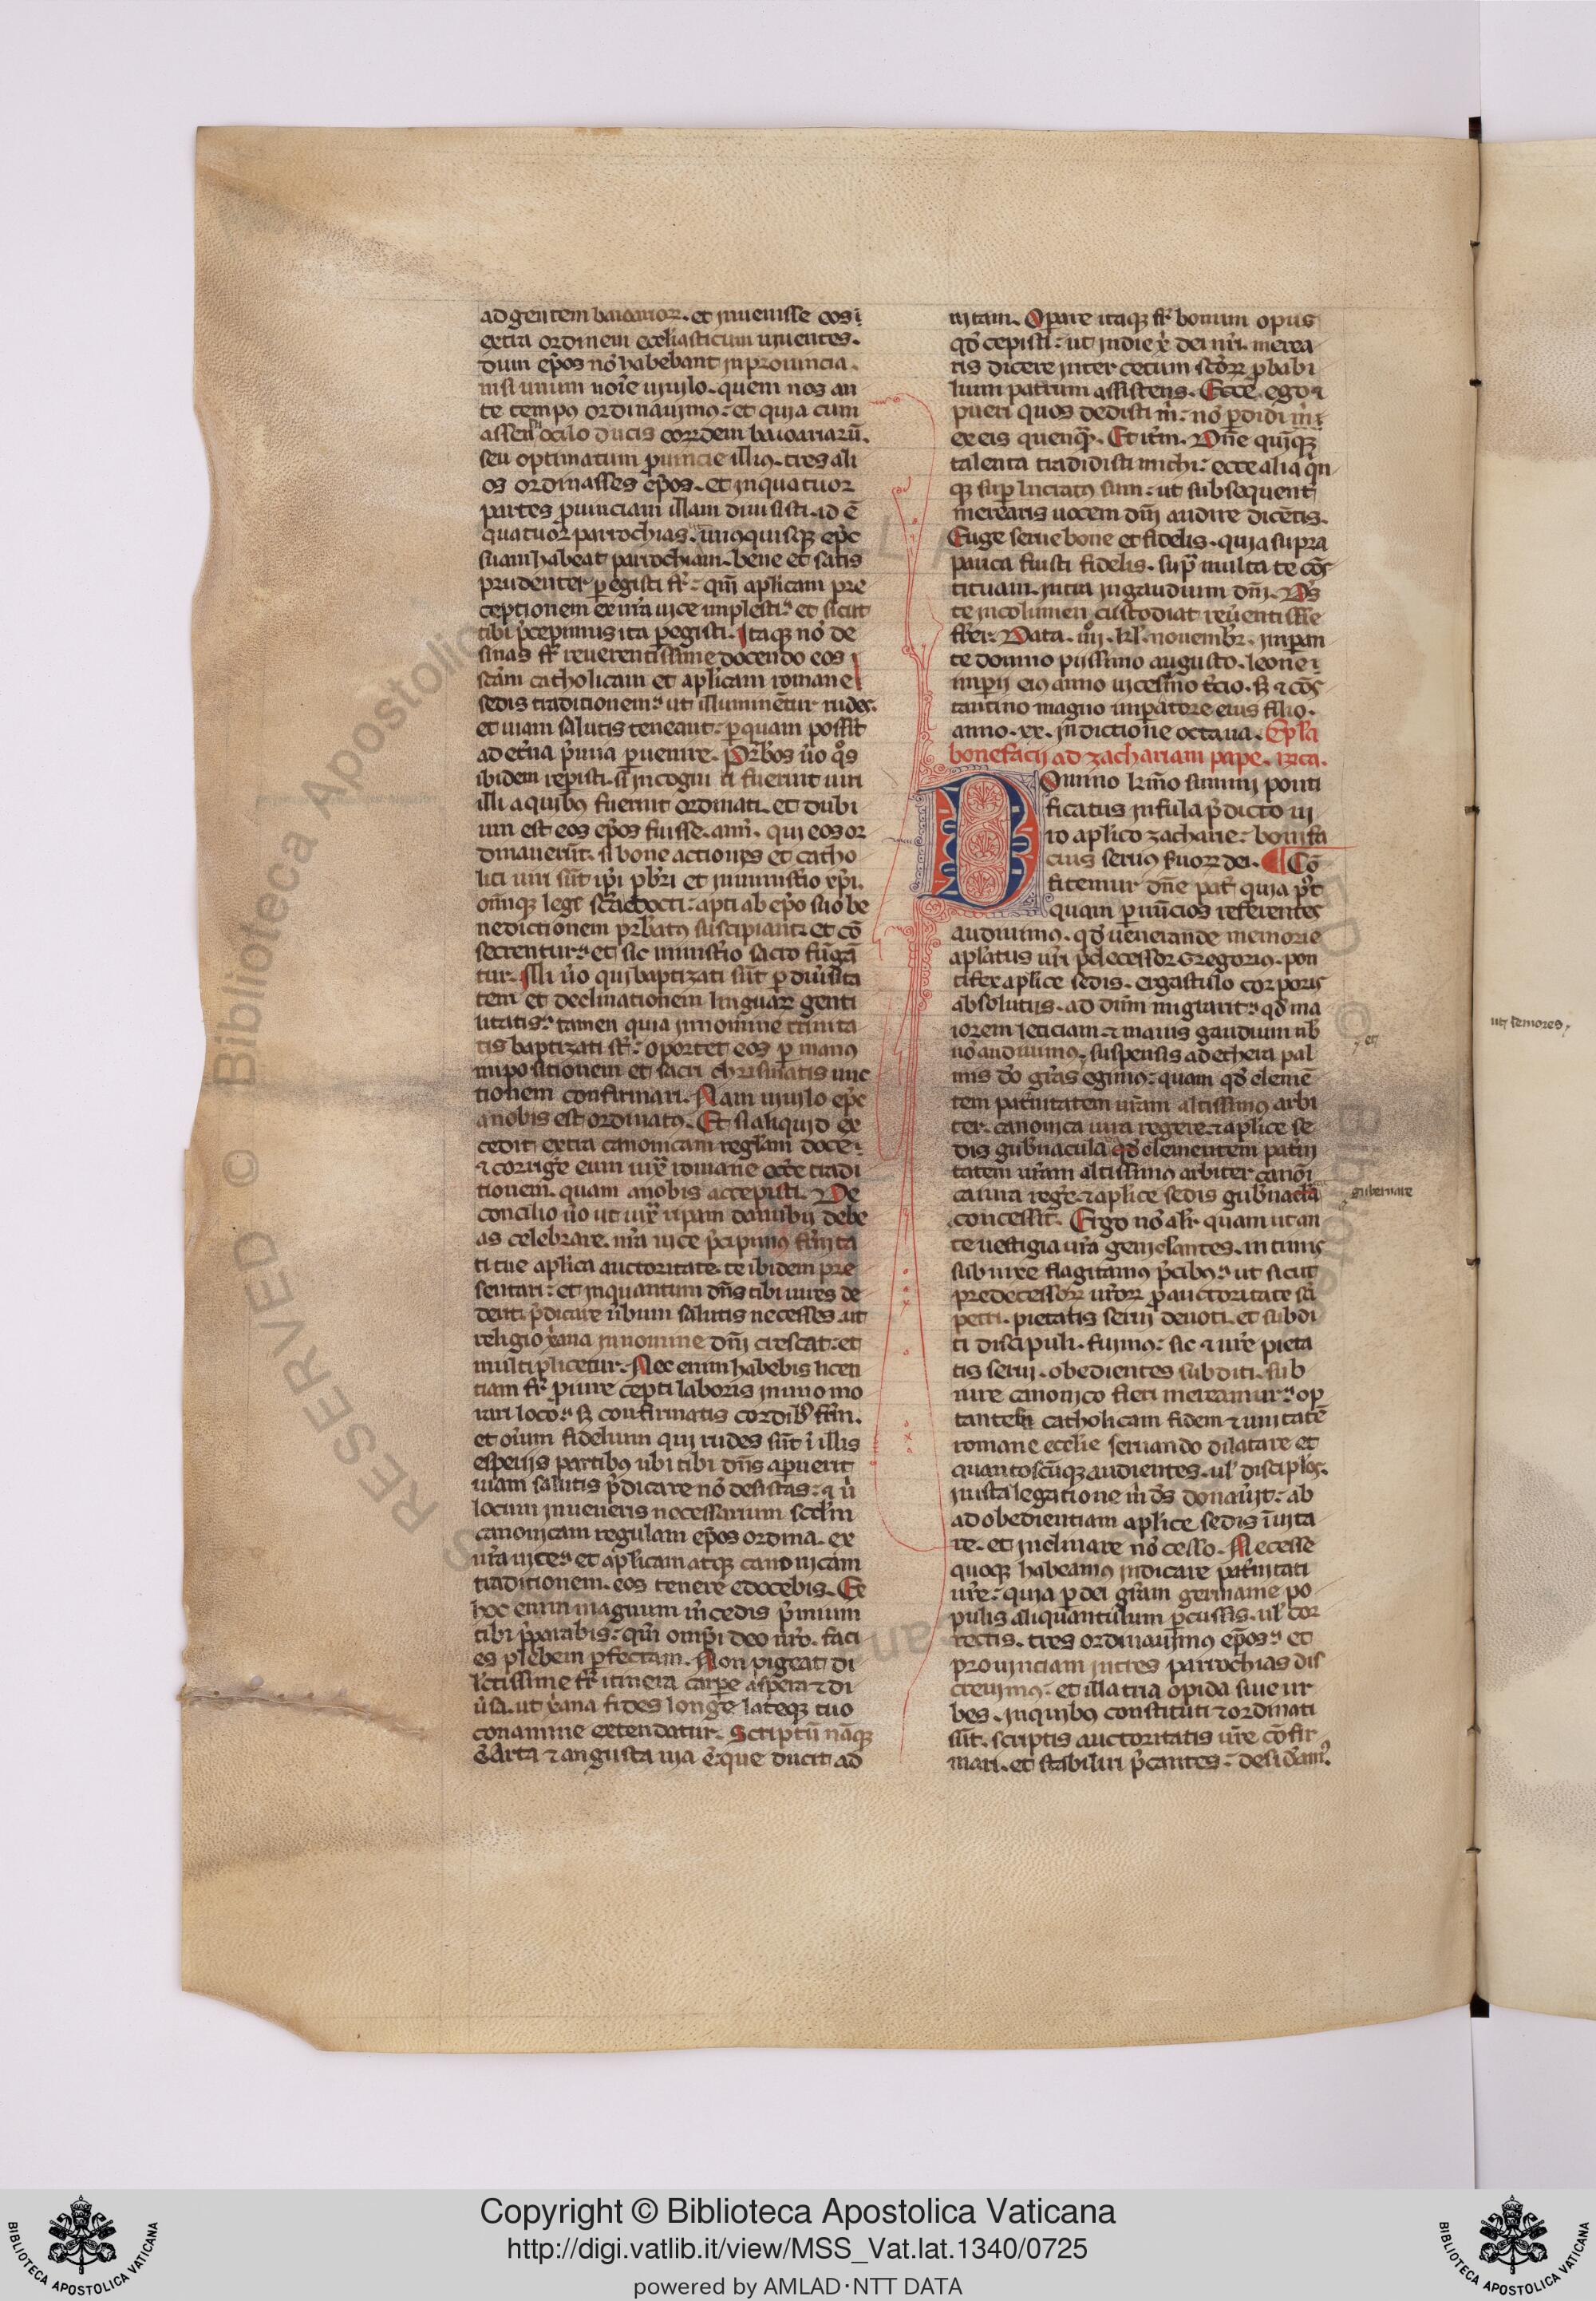 ad gentem baioarior̄. et inuenisse eos ī
extra ordinem eccl'iasticum uiuentes.
dum ep̄os nō habebant in prouincia.
nisi unum noīe uiuilo. quem nos an
te tempꝰ ordinauimꝰ: et quia cum
assensu ocilo ducis eorꝝdem baioariarū.
seu optimatum ꝓuincie illiꝰ. tres ali
os ordinasses ep̄os. et in quatuor
partes ꝓuinciam illam diuisisti. id ē
quatuor parrochias. unꝰquisqꝫ ep̄c
suam habeat parrochiam. bene et satis
prudenter ꝑegisti fr̄: qm̄ aplicam pre
ceptionem ex nr̄a uice implesti: et sicut
tibi p̄cepimus ita ꝑegisti. Itaqꝫ nō de
sinas fr̄ reuerentissime docendo eos
sc̄am catholicam et aplicam romane
sedis traditionem: ut illuminētur rudes.
et uiam salutis teneant: ꝑ quam possīt
ad et̄na p̄mia ꝑuenire. Pr̄bos ūo q̊s
ibidem reꝑisti. si incogniti fuerint uiri
illi a quibꝰ fuerint ordinati. et dubi
um est eos ep̄os fuisse. an n̄. qui eos or
dinauerūt. si bone actiones et catho
lici uiri sūt ip̄i pb̄ri et in ministio xp̄i.
om̄iqꝫ lege sc̄a edocti: apti ab ep̄o suo be
nedictionem pr̄batꝰ suscipiant: et cō
secrentur: et sic minist̄io sacro fūgā
tur. Illi ūo qui baptizati sūt ꝑ diūsita
tem et declinationem linguarꝝ genti
litatis: tamen quia in nomine trinita
tis baptizati sūt: oportet eos ꝑ manꝰ
impositionem et sacri chrismatis unc
tionem confirmari. Nam uiuilo ep̄c
a nobis est ordinatꝰ. Et si aliquid ex
cedit extra canonicam regl'am doce:
⁊ corrige eum iuxͣ romane ecc̄e tradi
tionem. quam a nobis accepisti. De
concilio ūo ut iuxͣ ripam danubij debe
as celebrare. nr̄a uice p̄cipimꝰ fr̄nita
ti tue aplica auctoritate. te ibidem pre
sentari: et in quantum dn̄s tibi uires de
derit p̄dicare ūbum salutis ne cesses. ut
religio xp̄iana in nomine dn̄i crescat: et
multiplicetur. Nec enim habebis licen
tiam fr̄ ꝓ iure cepti laboris in uno mo
rari loco: sꝫ confirmatis cordibꝰ fr̄m.
et om̄ium fidelium qui rudes sūt ī illis
esperijs partibꝰ ubi tibi dn̄s apuerit
uiam salutis p̄dicare nō desistas: ⁊ ū
locum inueneris necessarium scd'm
canonicam regulam ep̄os ordina. ex
nr̄a uice: et aplicam atqꝫ canonicam
traditionem. eos tenere edocebis. Ex
hoc enim magnum m̄cedis p̄mium
tibi p̄parabis: qm̄ omp̄i deo nr̄o. faci
es plebem ꝑfectam. Non pigeat di
lectissime fr̄ itinera carpe aspera ⁊ di
ūsa. ut xp̄iana fides longe lateqꝫ tuo
conamine extendatur. Scriptū nāqꝫ
ē. Arta ⁊ angusta uia ē que ducit ad
uitam. Opare itaqꝫ fr̄ bonum opus
qd̄ cepisti: ut in die xp̄i dei nr̄i. merea
ris dicere inter cetum sc̄orꝝ ꝓbabi
lium patrum assistens. Ecce ego ⁊
pueri quos dedisti m̄: nō ꝑdidi
ex eis quenqꝫ. Et it̄m. Dn̄e quiqꝫ
talenta tradidisti michi: ecce alia q̄n
qꝫ suꝑ lucratꝰ sum: ut subsequent̄
merearis uocem dn̄i audire dicētis.
Euge serue bone et fidelis. quia supra
pauca fuisti fidelis. supͣ multa te cōs
tituam. intra in gaudium dn̄i. Ds̄
te incolumen custodiat reūentissīe
fr̄er. Data. iiij. kl'. nouembr̄. impan
te domno pijssimo augusto. leone:
imꝑij eiꝰ anno uicesimo t̄cio. sꝫ ⁊ cōs
tantino magno imꝑatore eius filio.
anno. xx. indictione octaua. Epl'a
bonefacij ad zachariam pape. Rica.
Domino kr̄mo summi ponti
ficatus infula p̄dicto ui
ro aplico zacharie: bonifa
cius seruꝰ suorꝝ dei. ¶ Cō
fitemur dn̄e pat̄ quia pꝰt
quam ꝑ nūcios referentes
audiuimꝰ. qd̄ uenerande memorie
apl'atus uri p̄decessor Gregoriꝰ. pon
tifex aplice sedis. ergastulo corporis
absolutus. ad dn̄m migrarit: qd̄ ma
iorem leticiam ⁊ maius gaudium nūb
nō audiuimꝰ, suspensis ad ethera pal
mis dō gr̄as egimꝰ: quam qd̄ clemē
tem pat̄nitatem ur̄am altissimꝰ arbi
ter. canonica iura regere. ⁊ aplice se
dis gub̄nacula qd̄ clementem pat̄ni
tatem ur̄am altissimꝰ arbiter canōi
ca iura reḡe. ⁊ aplice sedis gub̄nacl'a
concessit. Ergo nō alr̄ quam ut an
te uestigia ur̄a geniclantes. intimis
subnixe flagitamꝰ p̄cibꝰ: ut sicut
predecessorꝝ ur̄orꝝ ꝓ auctoritate sc̄i
petri. pietatis serui deuoti. et subdi
ti discipuli. fuimꝰ: sic ⁊ ur̄e pieta
tis serui. obedientes subditi. sub
iure canonico fieri mereamur: op
tantes catholicam fidem ⁊ unitatē
romane ecclie seruando dilatare et
quantoscūqꝫ audientes. ul' discipl'os.
in ista legatione m̄ ds̄ donaūit: ab
ad obedientiam aplice sedis īuita
re. et inclinare nō cesso. Necesse
quoqꝫ habeamꝰ indicare pat̄nitati
ur̄e: quia ꝑ dei gr̄am germanie po
pulis aliquantulum ꝑcussis. ul' cor
rectis. tres ordinauimꝰ ep̄os: et
prouinciam in tres parrochias dis
creuimꝰ: et illa tria opida siue ur
bes. in quibꝰ constituti ⁊ ordinati
sūt. scriptis auctoritatis ur̄e cōfir
mari. et stabiliri p̄cantes: desid̄amꝰ.
⁊ et
gubernare
Copyright © Biblioteca Apostolica Vaticana
http://digi.vatlib.it/view/MSS_Vat.lat.1340/0725
powered by AMLAD·NTT DATA
BIBLIOTECA APOSTOLICA VATICANA
BIBLIOTECA APOSTOLICA VATICANA